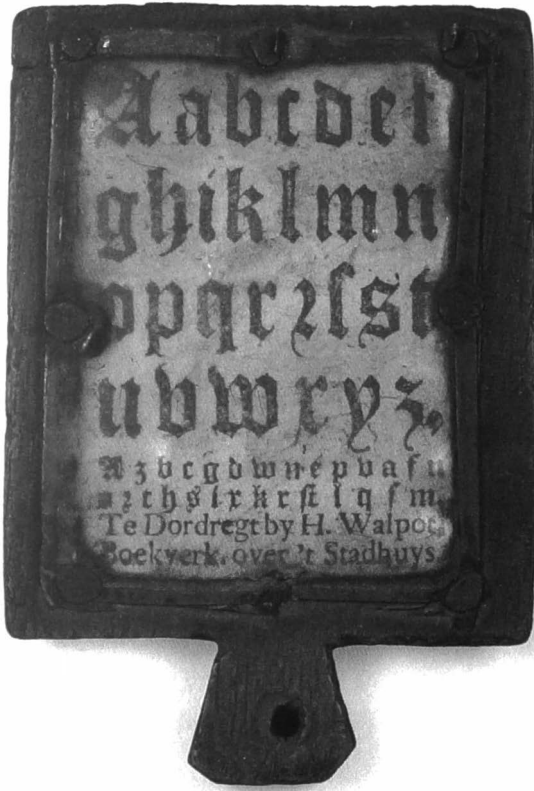 Aabcdef
ghiklmn
opqrꝛſst
uvwxyz.
A z b c g d w n e p v a f u
o ꝛ t h s i x k r ſt l q ſ m
Te Dordregt by H. Walpot,
Boekverk. over 't Stadhuys